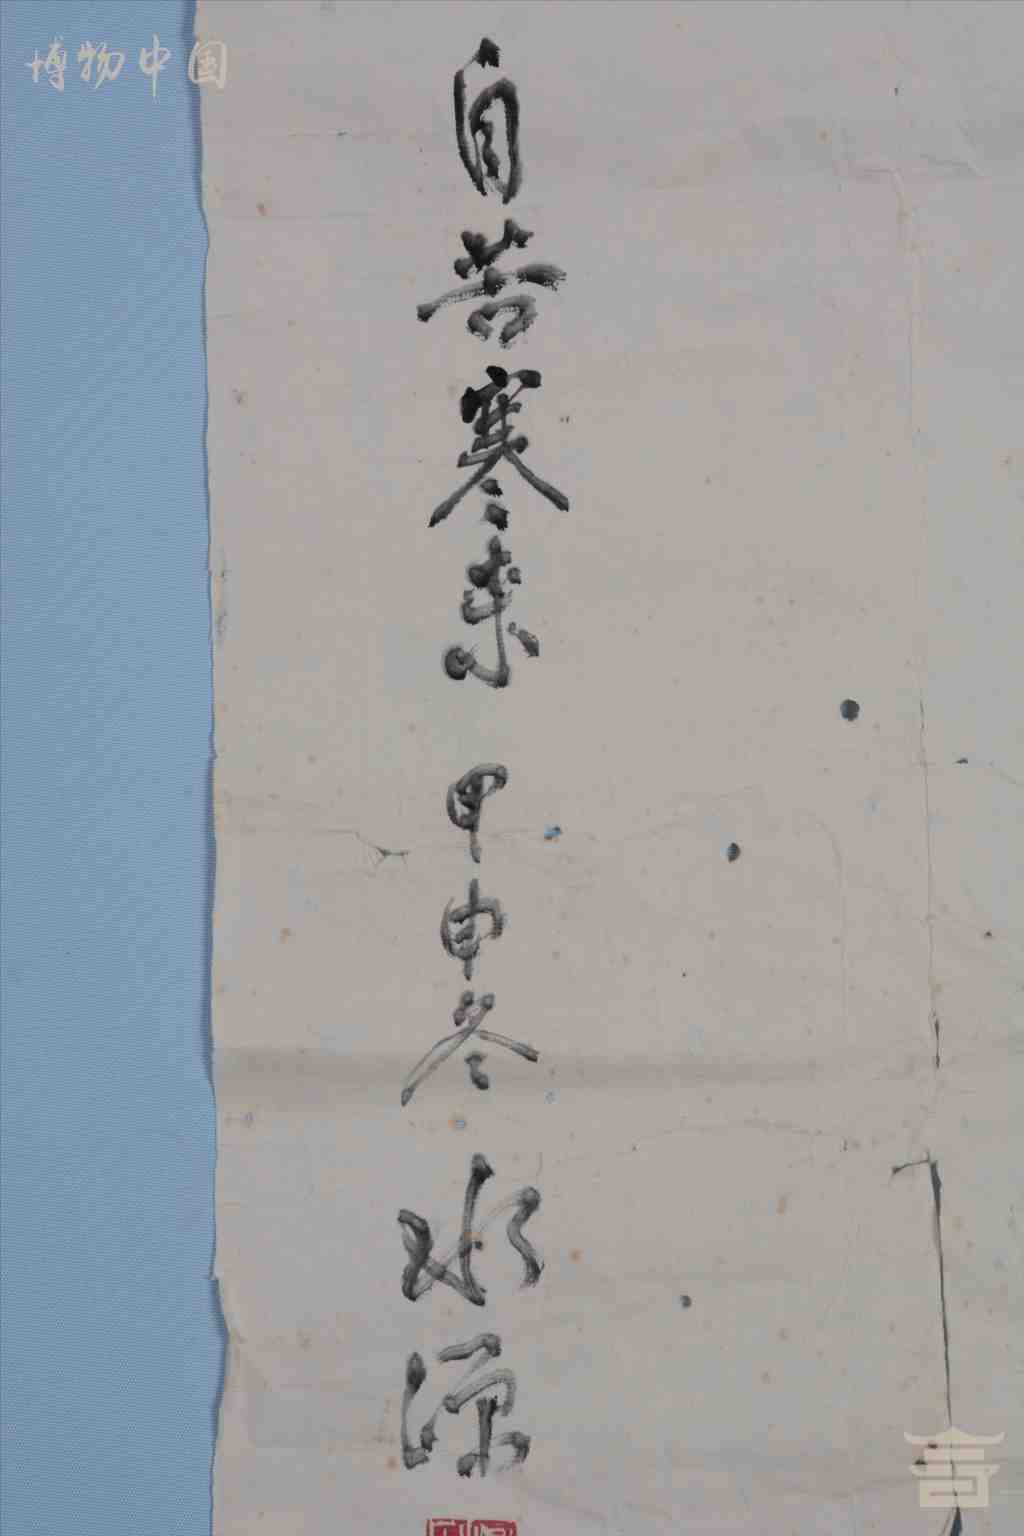 博物中国
自苦寒来 甲申冬 水源